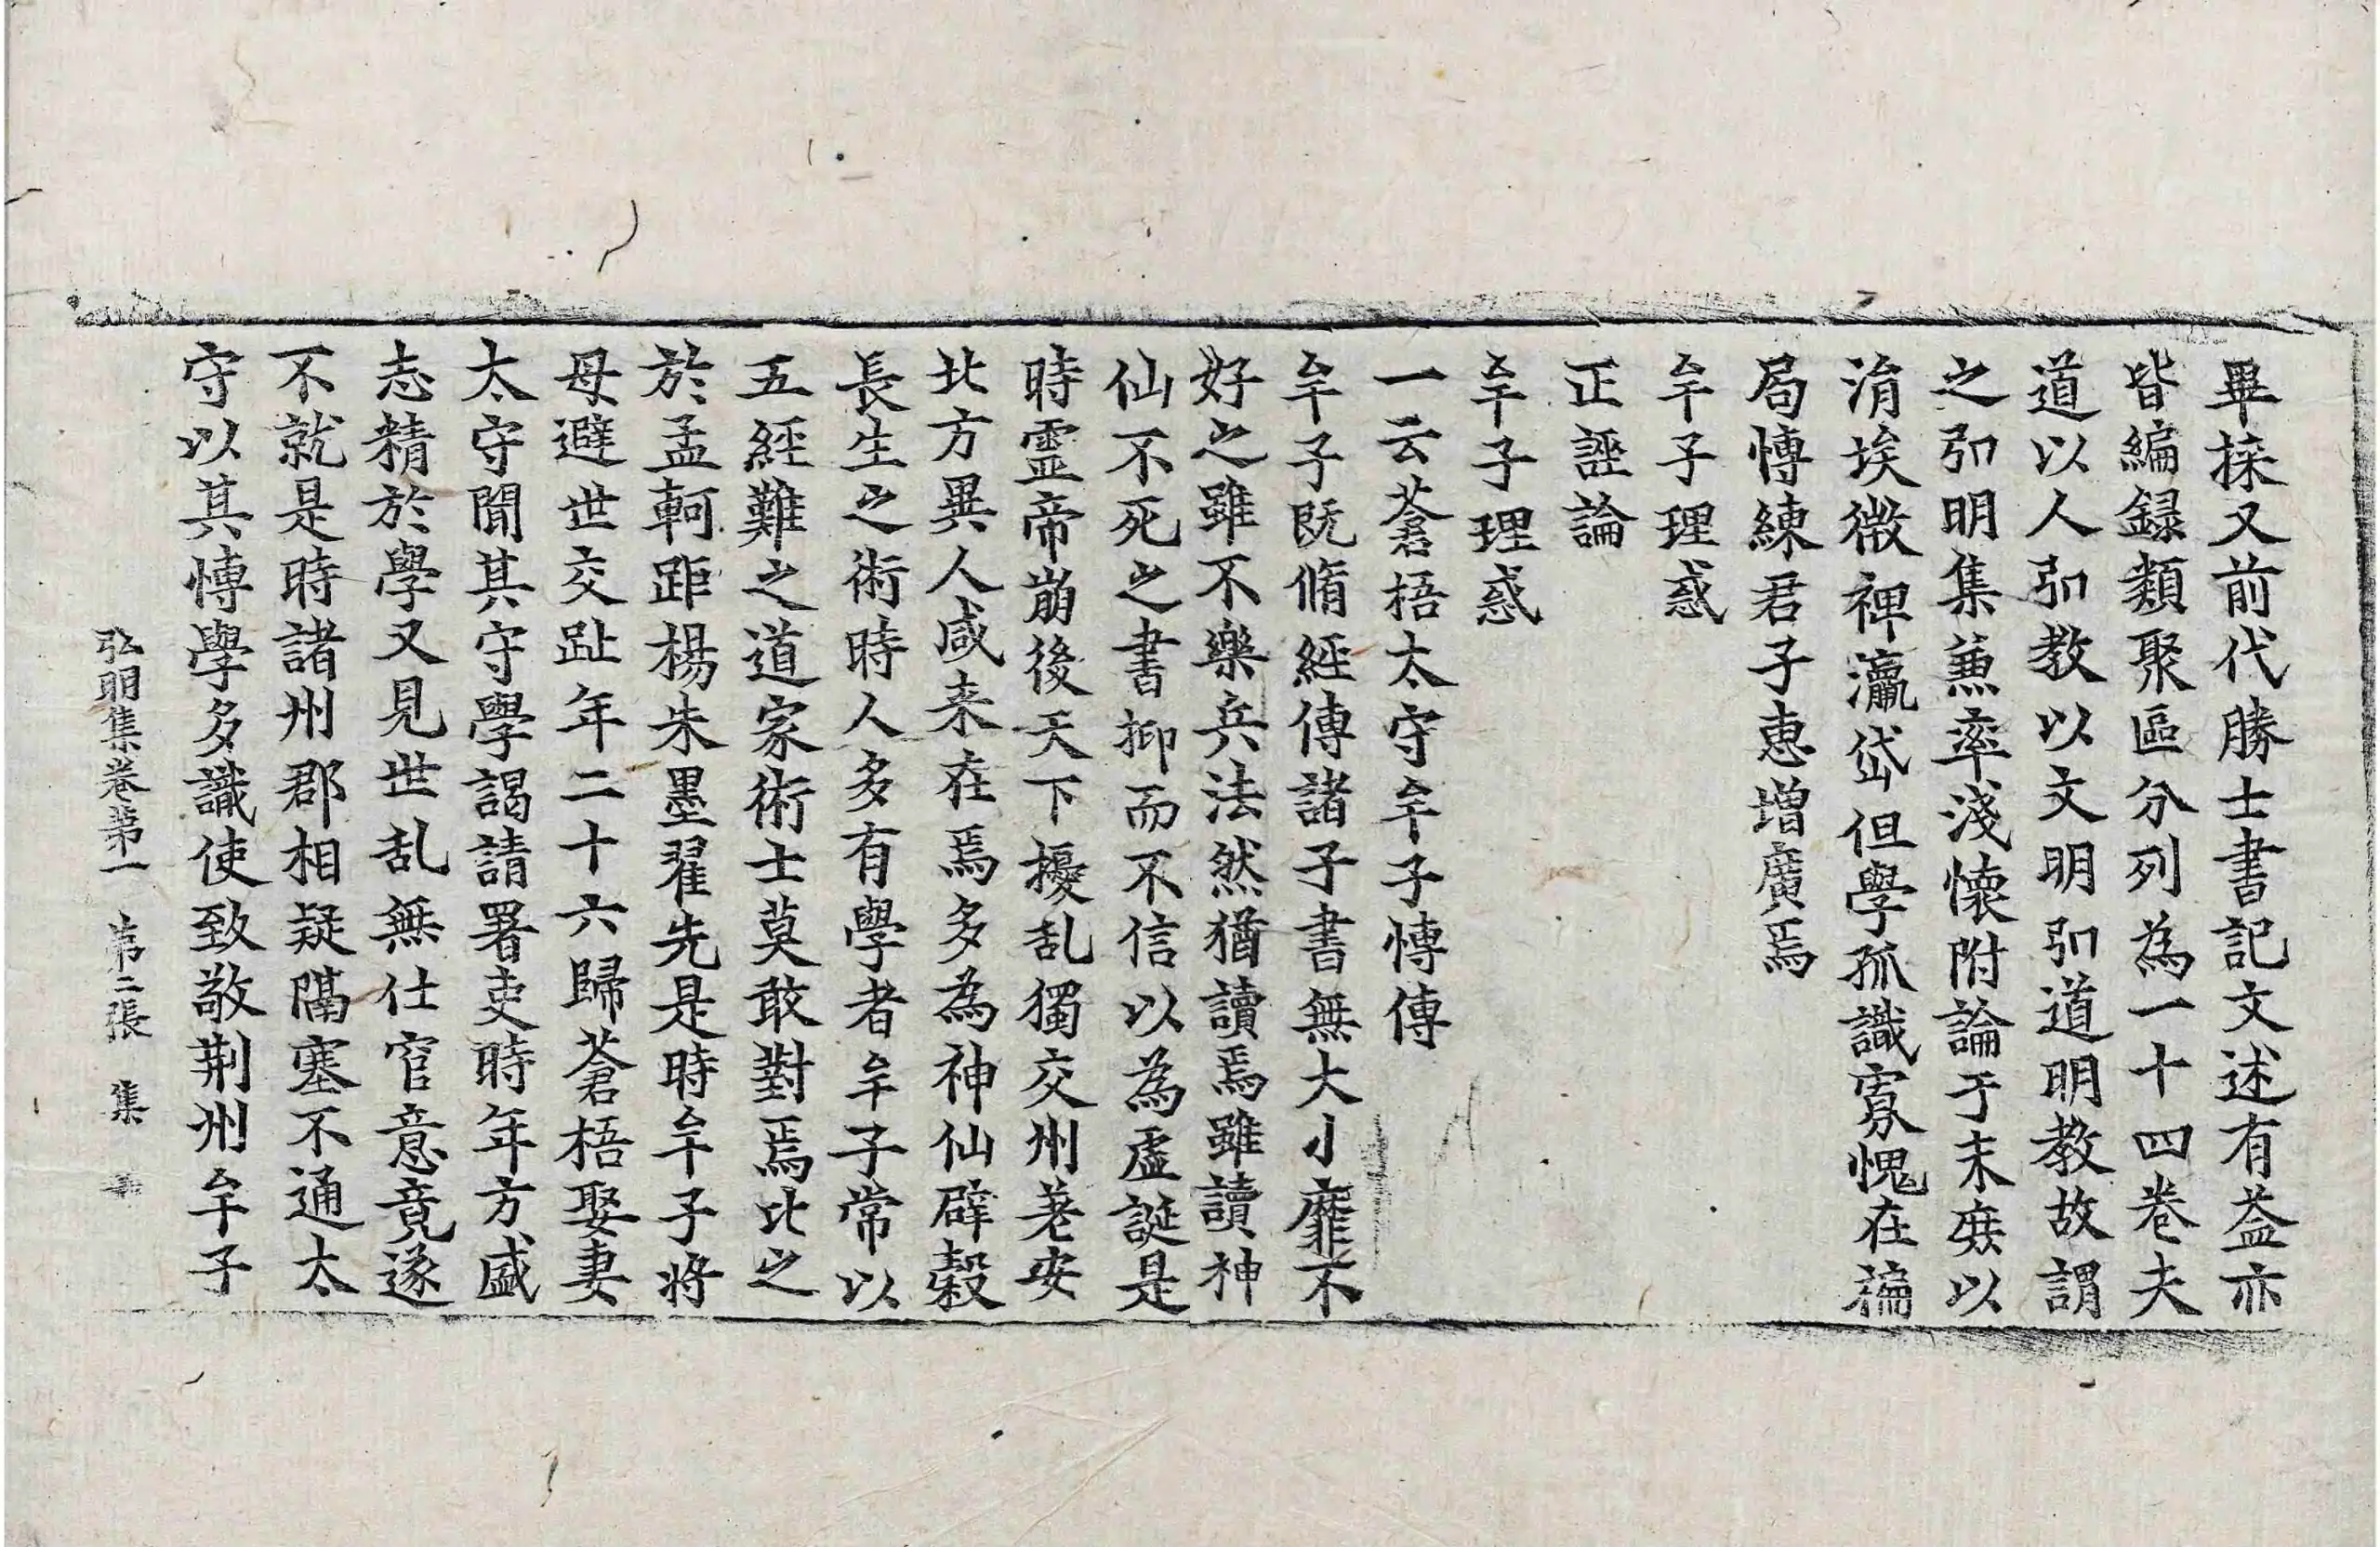 畢採又前代勝士書記文述有益亦
皆編録類聚區分列為一十四卷夫
道以人弘教以文明弘道明教故謂
之弘明集兼率淺懷附論于末庶以
涓埃微裨瀛岱但學孤識寡愧在褊
局愽練君子惠增廣焉
牟子理惑
正誣論
牟子理惑
一云蒼梧太守牟子愽傳
牟子既脩經傳諸子書無大小靡不
好之雖不樂兵法然猶讀焉雖讀神
仙不死之書抑而不信以為虛誕是
時靈帝崩後天下擾乱獨交州差安
北方異人咸来在焉多為神仙辟穀
長生之術時人多有學者牟子常以
五經難之道家術士莫敢對焉比之
於孟軻距楊朱墨翟先是時牟子将
母避世交趾年二十六歸蒼梧娶妻
太守聞其守學謁請署吏時年方盛
志精於學又見世乱無仕官意竟遂
不就是時諸州郡相疑隔塞不通太
守以其愽學多識使致敬荆州牟子
弘明集卷第一　第二張　集